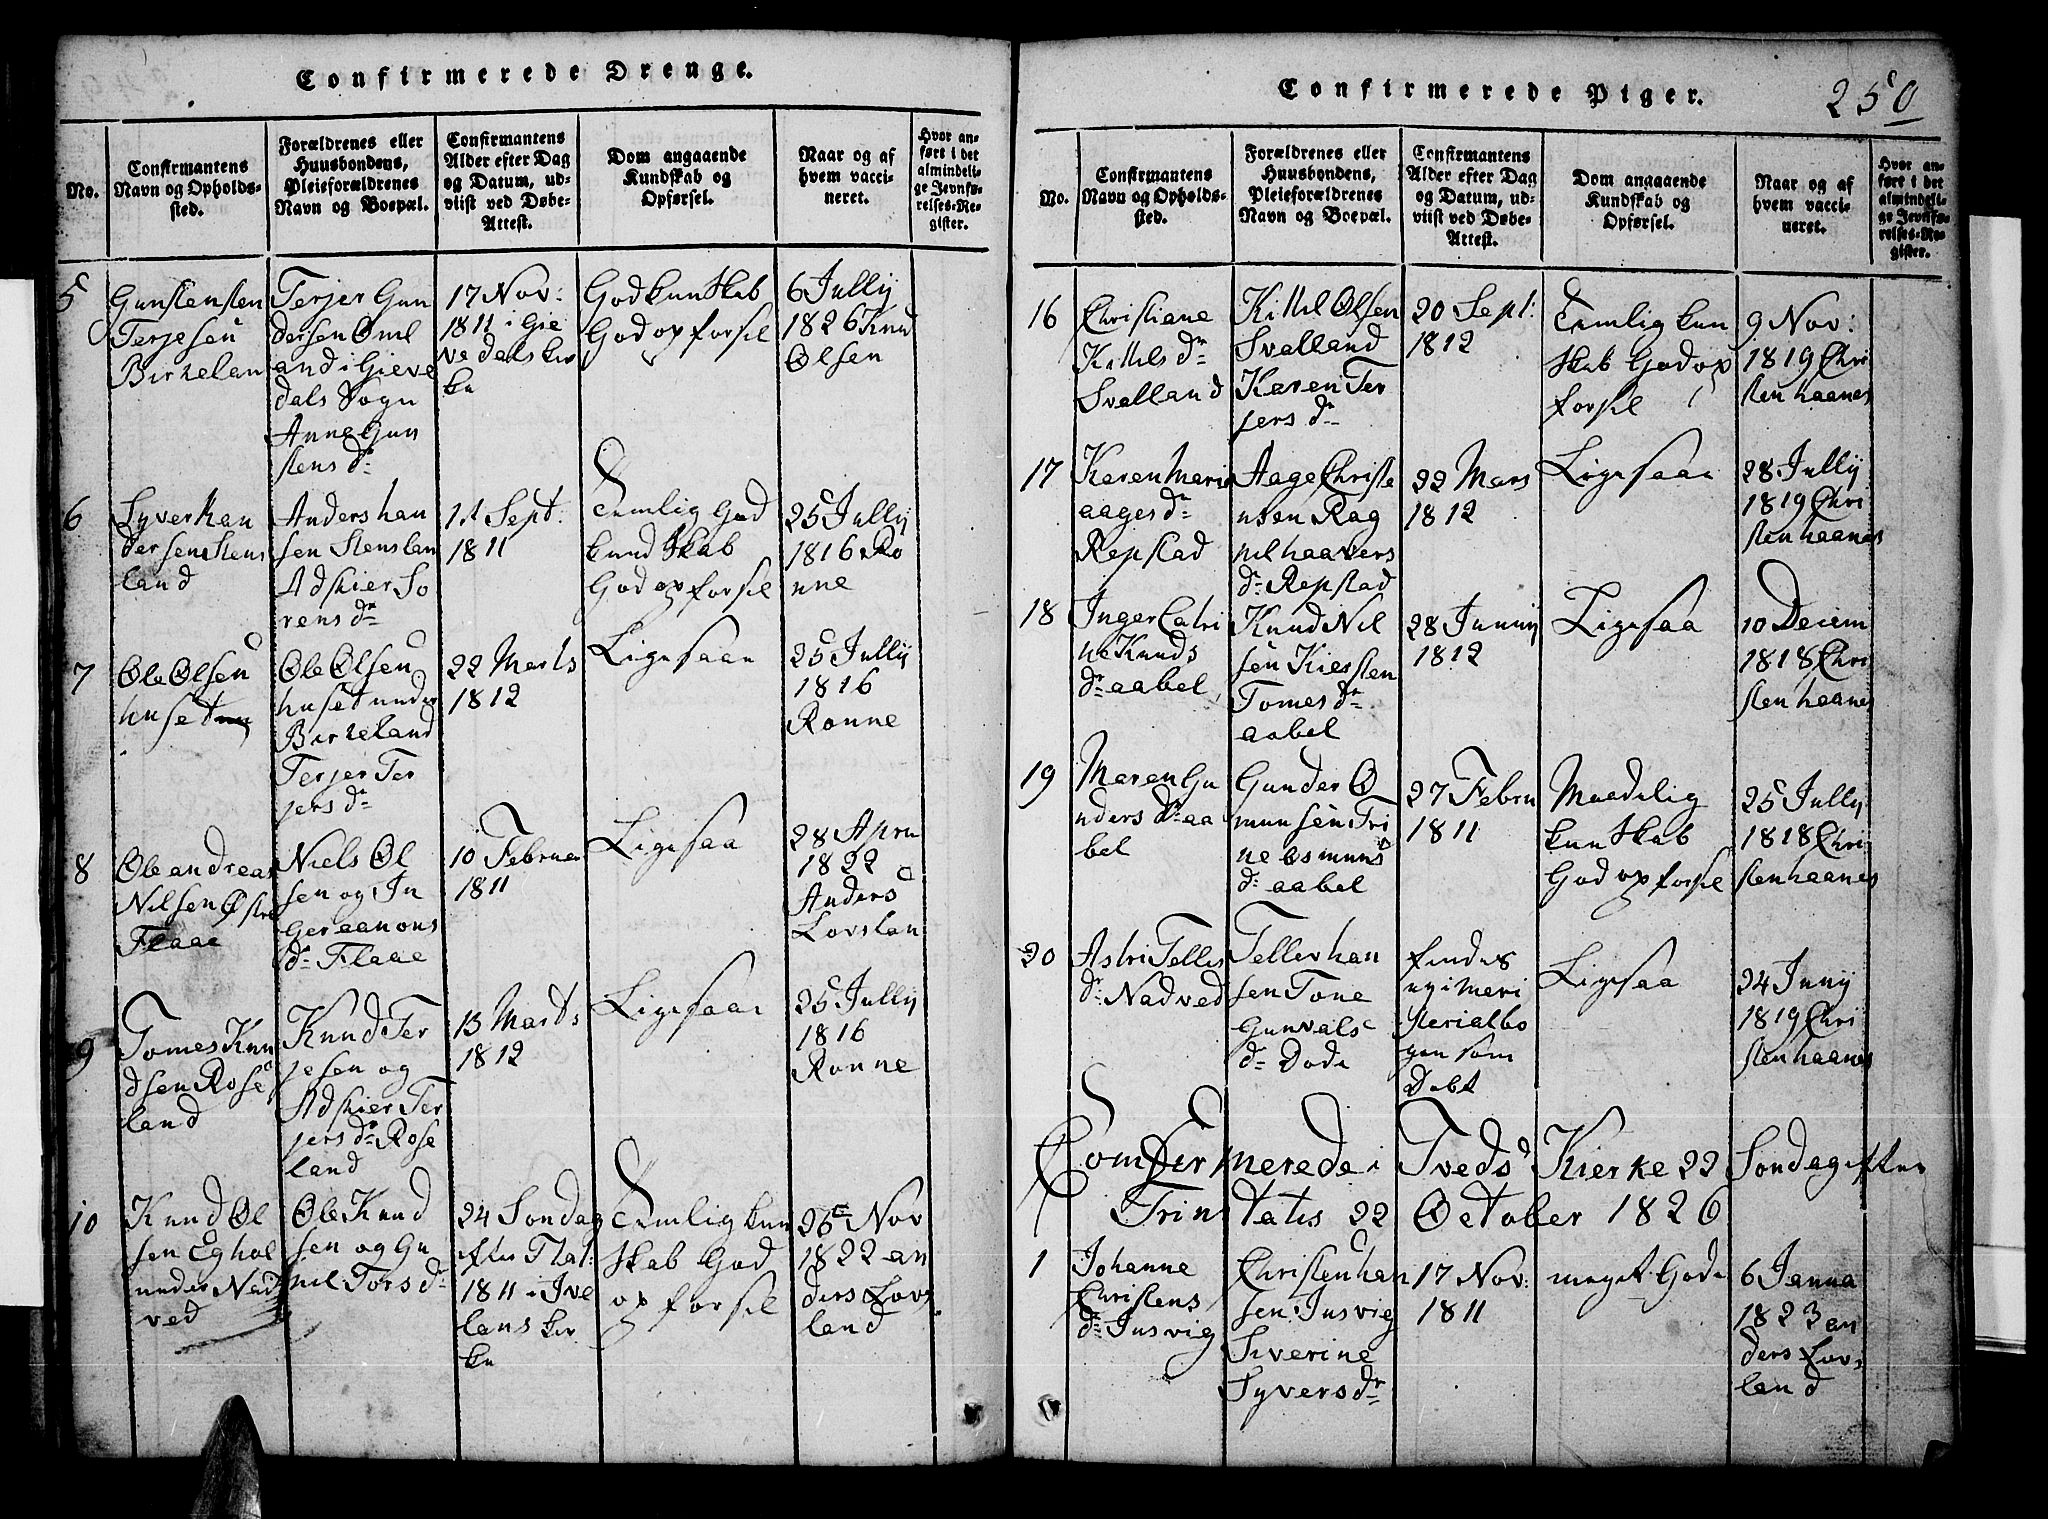 Confirmerede Drenge.
No.
Confirmantens
Navn og Opholds-
sted.
Forældrenes eller
Huusbondens,
Pleieforældrenes
Navn og Boepæl.
Confirmantens
Alder efter Dag
og Datum, ud-
viist ved Døbe-
Attest.
Dom angaaende
Kundskab og
Opførsel.
Naar og af
hvem vacci-
neret.
Hvor an-
ført i det
almindeli-
ge Jevnfø-
relses-Re-
gister.
5
Gunstensten
Terjesen
Birkelan
Terjer Gun
dersen Oml
and i Gieve
dals Sogn
Anne Gun
stens dr
17 Nov:
1811 i Gie
vedals kir
ke
God kunskab
God opforsel
6 Jully
1826 Knud
Olsen
6
Syver han
dersen Stens
land
Anders han
sen Stenslan
Adskier So
rens dr
1 Sept:
1811
Temlig God
kundskab
God opforsel
25 Jully
1816 Ro
nne
7
Ole Olsen
huset
Ole Olsen
huset under
Birkeland
Terjer Ter
jers dr
22 Marts
1812
Ligesaa
25 Jully
1816
Ronne
8
Ole andreas
Nilsen Østre
Flaae
Niels Ol
sen og In
ger aanons
dr Flaae
10 Februe
1811
Ligesaa
28 Apru
1822
Anders
Lovslan
9
Tomes Knu
dsen Rose
land
Knud Ter
jesen og
Adskier Ter
jers dr Rose
land
13 Marts
1812
Ligesaa
25 Jully
1816
Ronne
10
Knud Ol
sen Eghol
under Nad
ved
Ole Knud
sen og Gu
nil Tors dr
24 Sondag
efter
1811 i Ive
lans kir
ke
Temlig kun
skab God
opforsel
26 Nov
1822 an
ders Lovs
land
Confirmerede Piger.
250
No.
Confirmantens
Navn og Opholds-
sted.
Forældrenes eller
Huusbondens,
Pleieforældrenes
Navn og Boepæl.
Confirmantens
Alder efter Dag
og Datum, ud-
viist ved Døbe-
Attest.
Dom angaaende
Kundskab og
Opførsel.
Naar og af
hvem vacci-
neret.
Hvor an-
ført i det
almindeli-
ge Jevnfø-
relses-Re-
gister.
16
Christiane
Kittels dr
Svalland
Kittel Olsen
Svalland
Karen Ter
jers dr
20 Sept:
1812
Temlig kun
skab God op
forsel
9 Nov:
1819 Chri
sten haanes
17
Karen Marie
aages dr
Repstad
Aage Christe
nsen Rag
nil haavers
dr Repstad
22 Mars
1812
Ligesaa
28 Jully
1819 Chri
sten haanes
18
Inger Catri
ne Knuds
dr aabel
Knud Nil
sen Kiersten
Tomes dr
aabel
28 Junny
1812
Ligesaa
10 Deiem
1818 Chri
sten haanes
19
Maren Gu
nders dr aa
bel
Gunder O
munsen Tri
ne osmuns
dr aabel
27 Febru
1811
Maadelig
kunskab
God opforsel
25 Jully
1818 Chri
sten haanes
20
Astri Telles
dr Nadved
Tellev han
sen Tone
Gunvals
dr Dode
findes
ny i meni
sterialbo
gen som
Dobt
Ligesaa
24 Juny
1819 Chri
sten haanes
Comfermerede i Tveds Kierke 22 Sondag efter
Trinitatis 22 October 1826
1
Johanne
Christens
dr Jusvig
Christen han
sen Jusvig
Siverine
Syvers dr
17 Nov:
1811
meget Gode
6 Janua
1823 an
ders Lovs
land